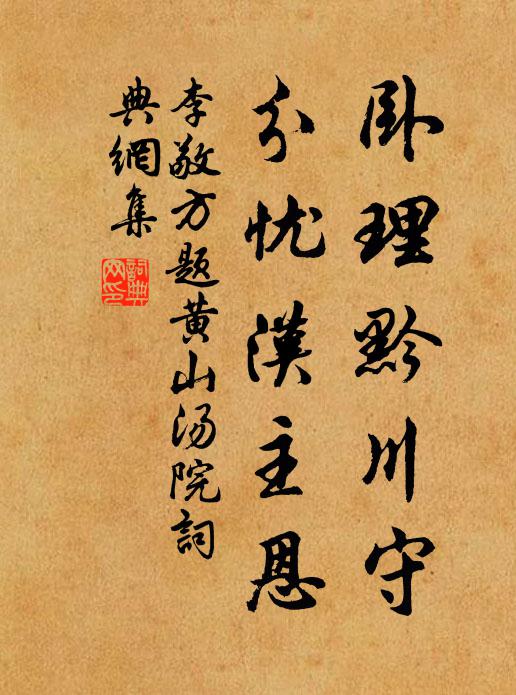 卧理黔川守
分忧漢主恩
李敬方题黄山汤院詞
典網集
詞典
网印